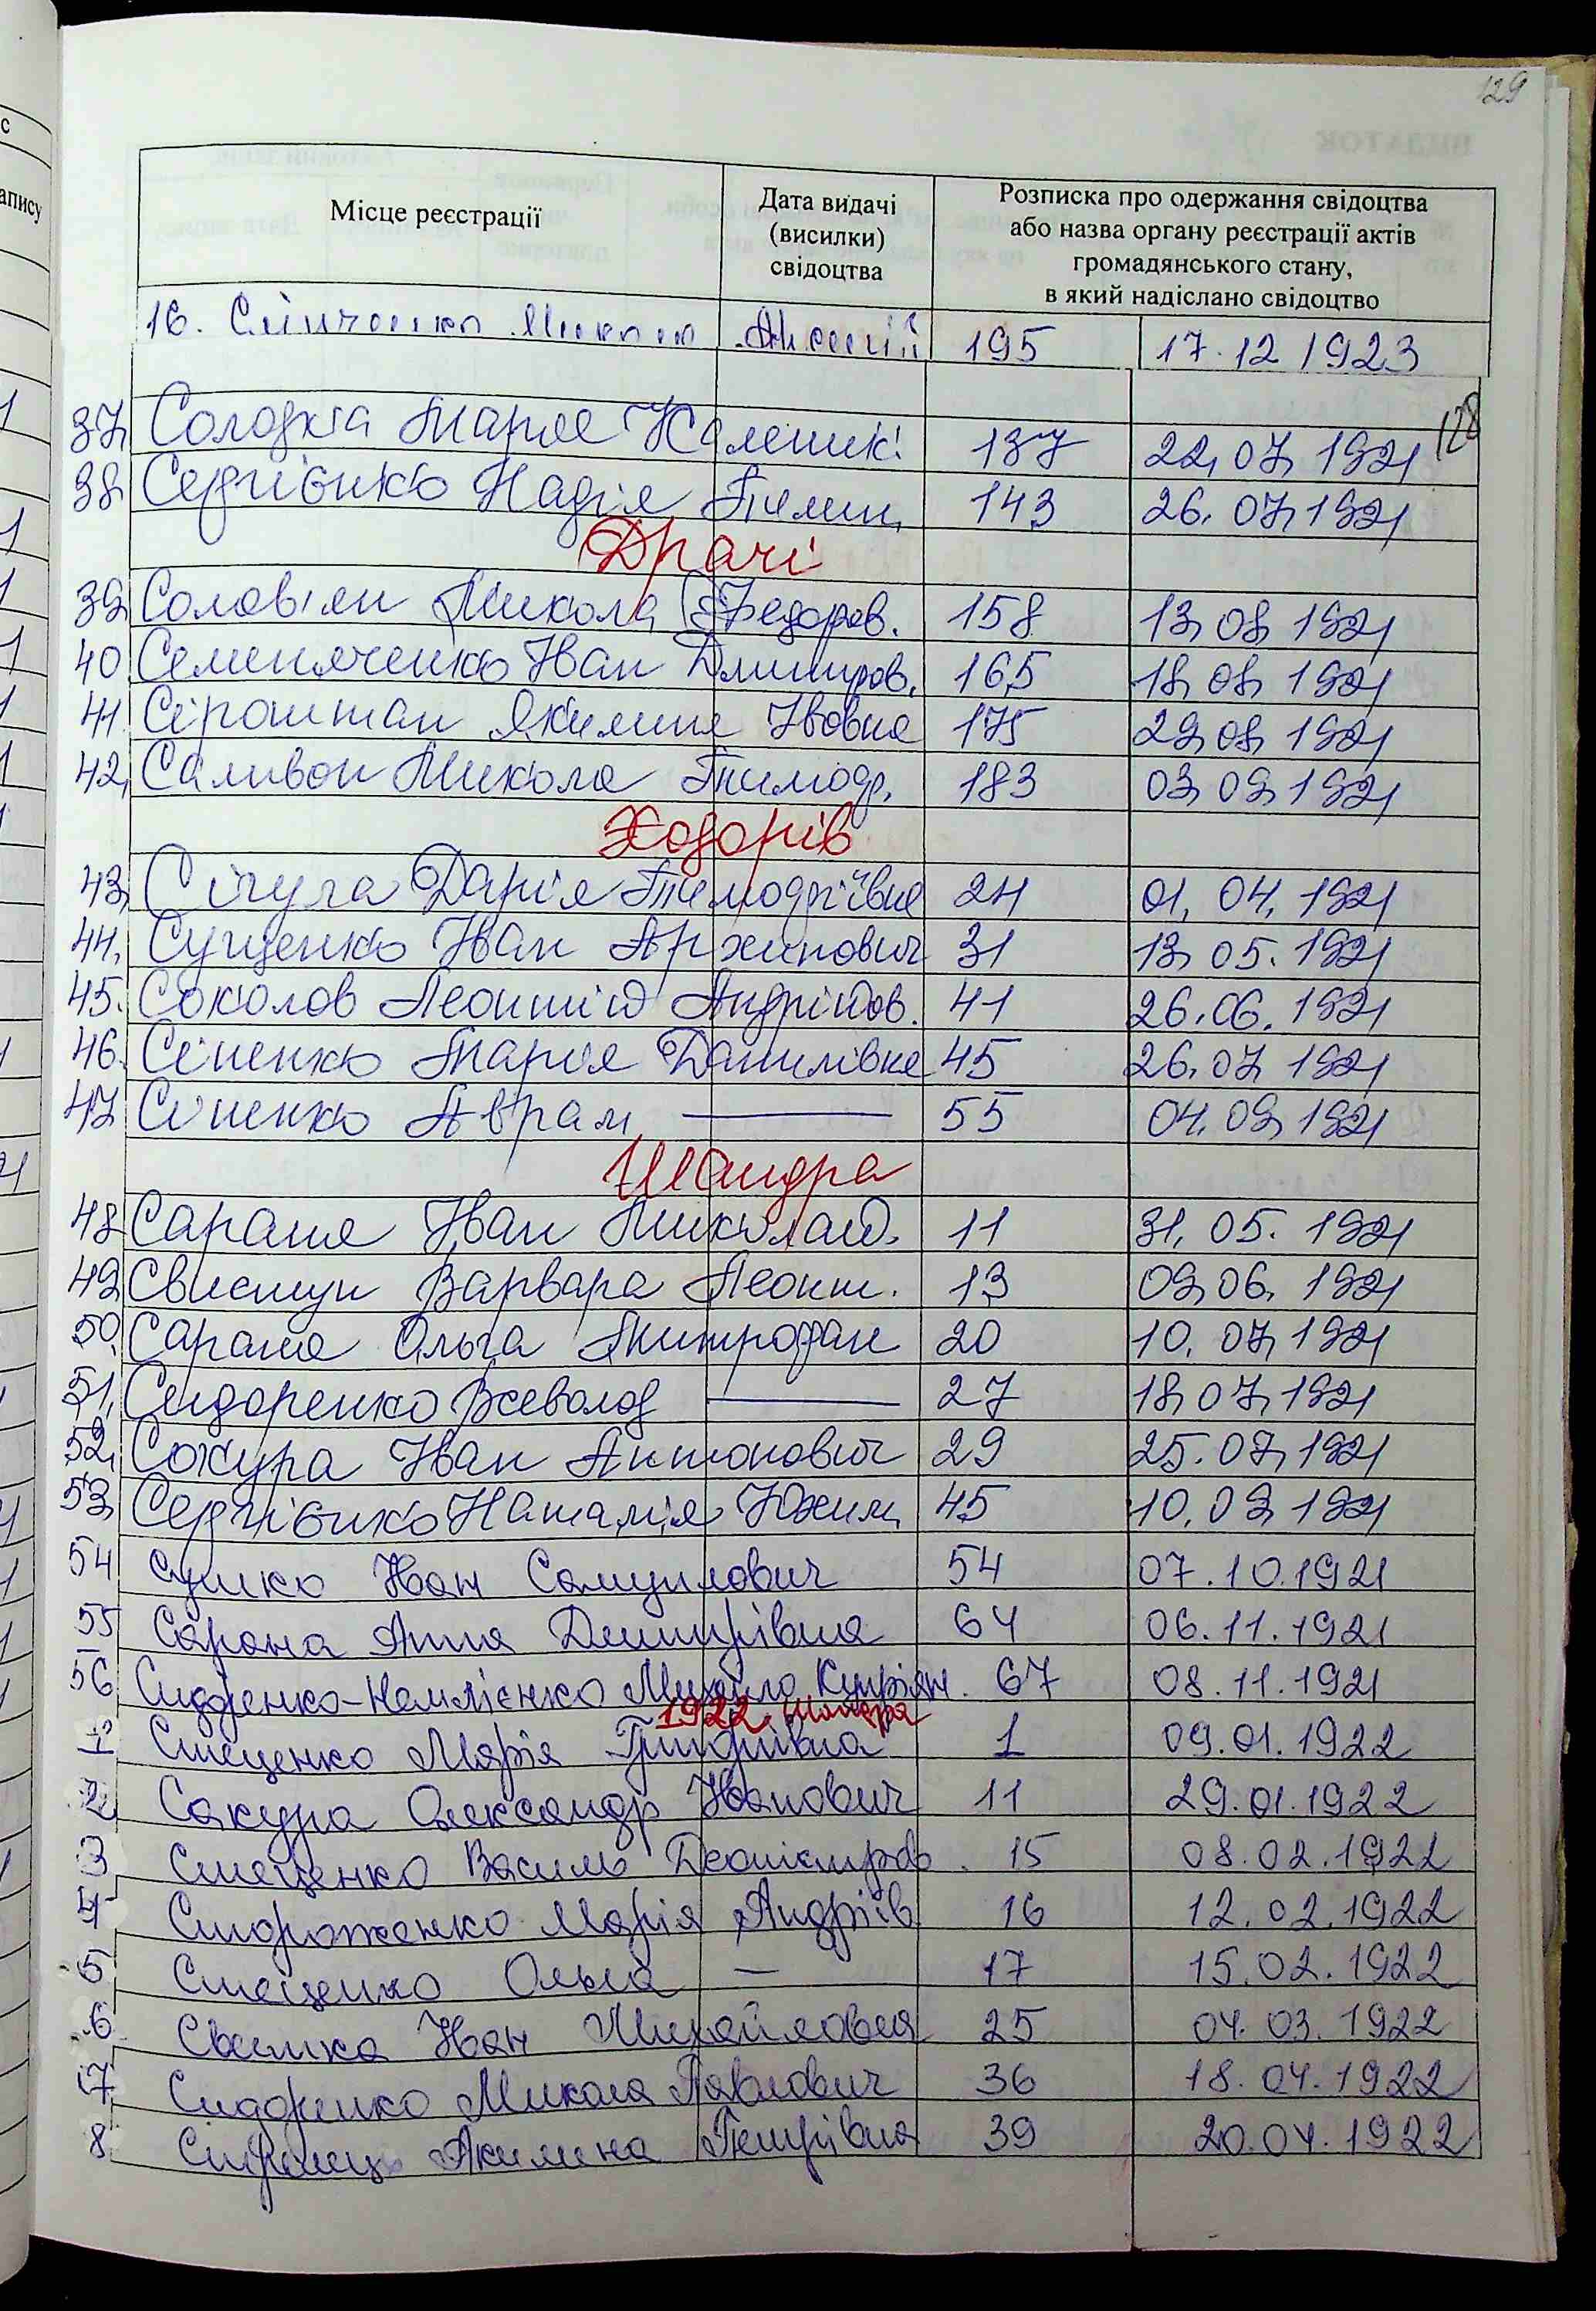 129
Місце реєстрації
Дата видачі
(висилки)
свідоцтва
Розписка про одержання свідоцтва
або назва органу реєстрації актів
громадянського стану,
в який надіслано свідоцтво
16. 195 17.12 1923
128
37. Солодка Марія 137 22.07.1921
38. Сергієнко Надія Тимиш. 143 26.07.1921
Драчі
39. Соловіян Микола Федоров. 158 13.08.1921
40. Семеняченко Іван Дмитров. 165 18.08.1921
41. Сіроштан Якилина Івовна 175 29.08.1921
42. Саливон Микола Тимоф. 183 03.09.1921
Ходорів
43. Сігула Дарія Тимофіївна 24 01.04.1921
44. Сущенко Іван Архипович 31 13.05.1921
45. Соколов Леонтій Андрійов. 41 26.06.1921
46. Сіненко Марія Данилівна 45 26.07.1921
47. Сіненко Аврам — 55 04.09.1921
Шандра
48. Сарана Іван Миколай. 11 31.05.1921
49. Свистун Варвара Леонт. 13 09.06.1921
50. Сарана Ольга Митрофан 20 10.07.1921
51. Сидоренко Всеволод — 27 18.07.1921
52. Сокура Іван Антонович 29 25.07.1921
53. Сергієнко Наталія Юхим. 45 10.09.1921
54 Сушко Іван Самуилович 54 07.10.1921
55 Сарана Анна Дмитрівна 64 06.11.1921
56 Сидоренко-Немлієнко Михайло Купріян. 67 08.11.1921
1922. Шандра
1 Стеценко Марія Григорівна 1 09.01.1922
2 Сакура Олександр Іванович 11 29.01.1922
3 Стеценко Василь 15 08.02.1922
4 Стороженко Марія Андріїв 16 12.02.1922
5 Стеценко Ольга — 17 15.02.1922
6 Іван Михайлович 25 04.03.1922
7 Сидоренко Микола Павлович 36 18.04.1922
8. Акилина Петрівна 39 20.04.1922